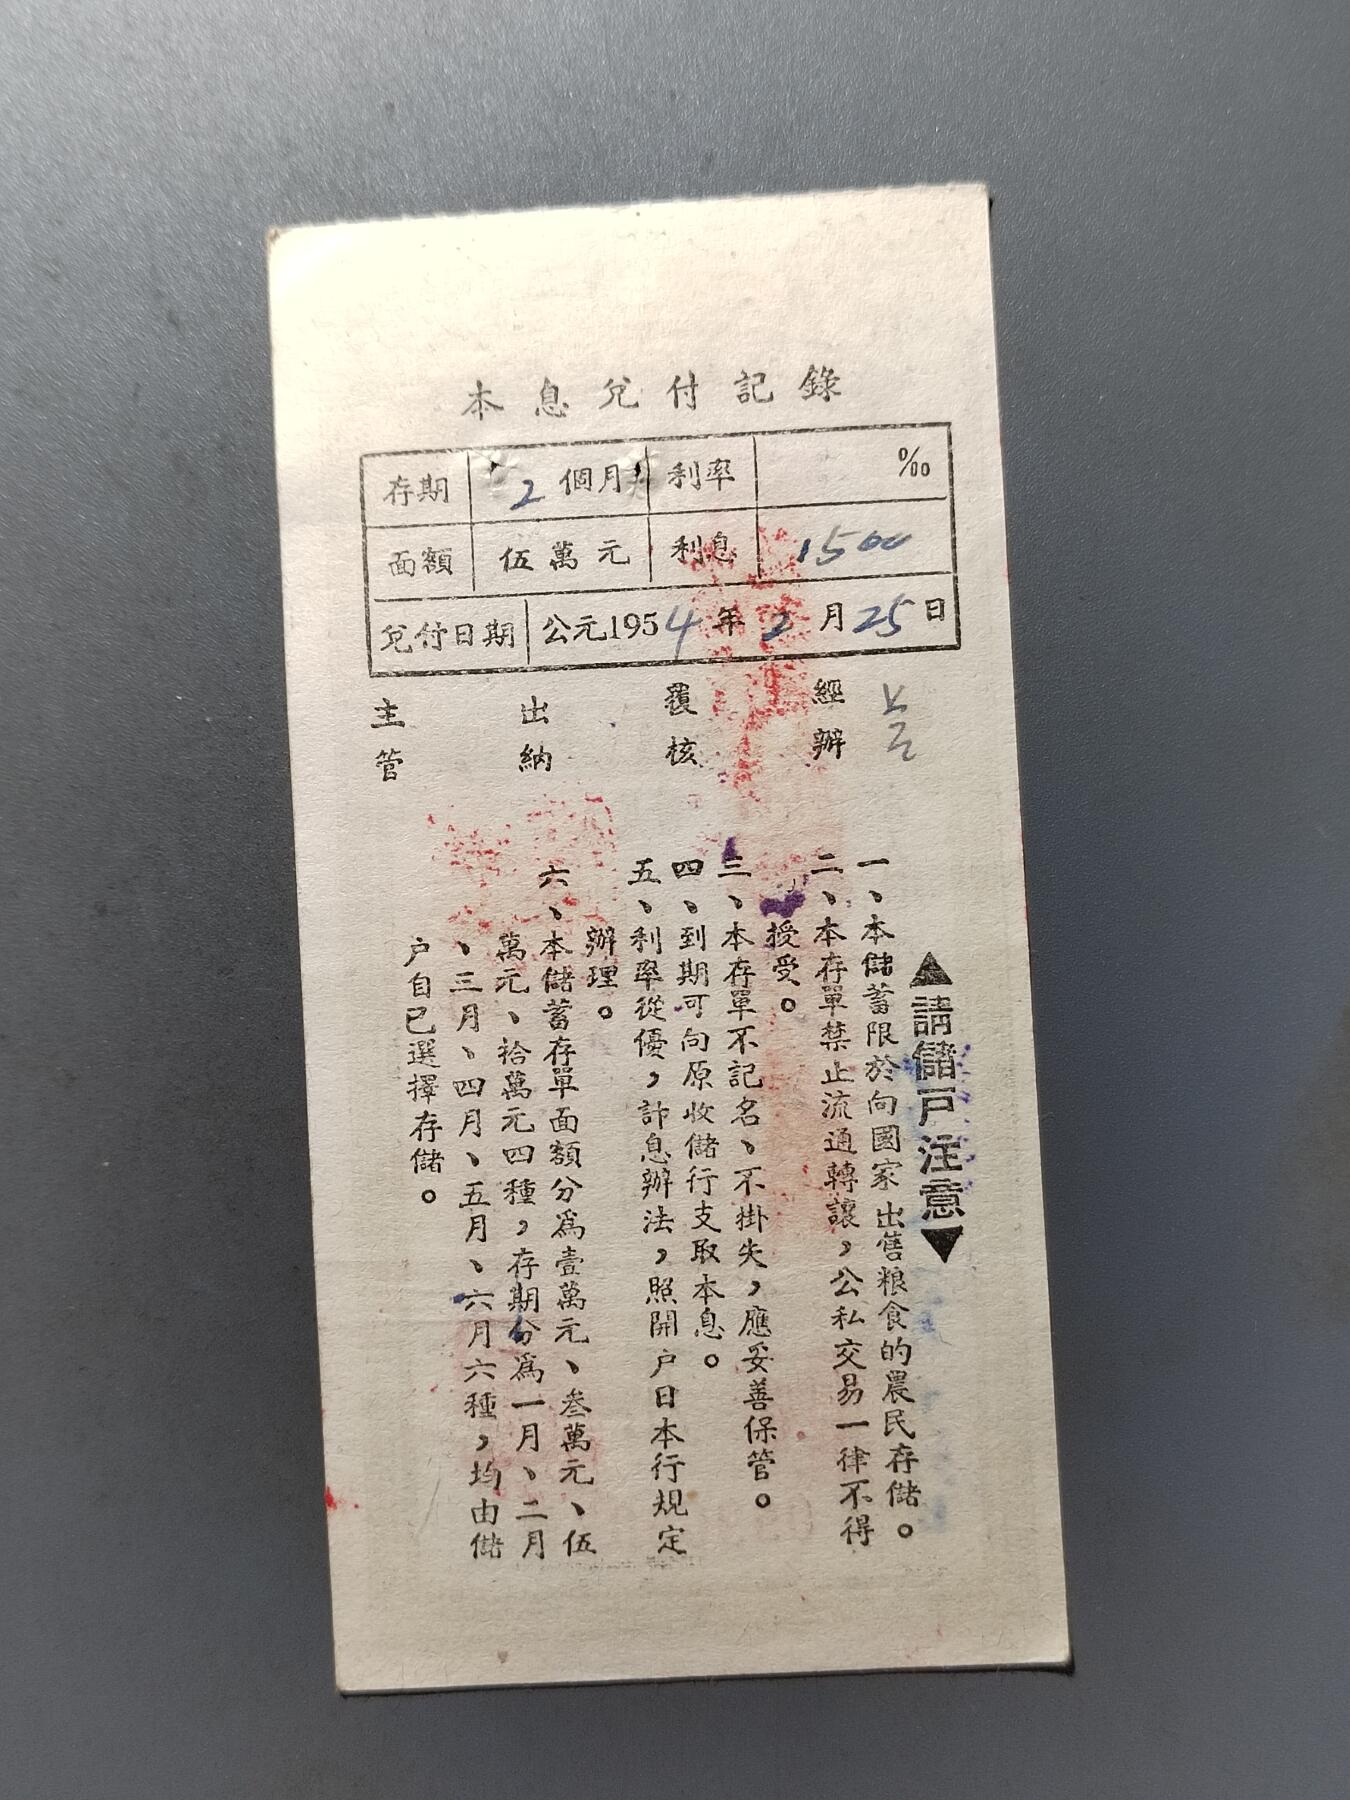 本息兌付記錄
存期 2個月 利率 ‰
面額 伍萬元 利息 1500
兌付日期 公元1954年2月25日
主管 出納 覆核 經辦
▲請儲戶注意▼
一、本儲蓄限於向國家出售粮食的農民存儲。
二、本存單禁止流通轉讓，公私交易一律不得
授受。
三、本存單不記名、不掛失，應妥善保管。
四、到期可向原收儲行支取本息。
五、利率從優，計息辦法，照開户日本行規定
辦理。
六、本儲蓄存單面額分爲壹萬元、叁萬元、伍
萬元、拾萬元四種，存期分爲一月、二月
、三月、四月、五月、六月六種，均由儲
户自已選擇存儲。